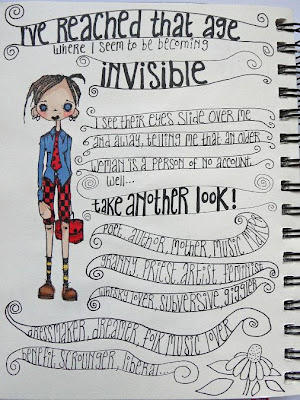 I've REACHED that age
where I seem to be becoming
INVISIBLE
I see their eyes slide over me
and away, telling me that an older
woman is a person of no account
well...
take another look!
poet, author, mother, music maker
granny, priest, artist, feminist
whisky lover, subversive, giggler
dressmaker, dreamer, folk music lover
benefit scrounger, liberal...